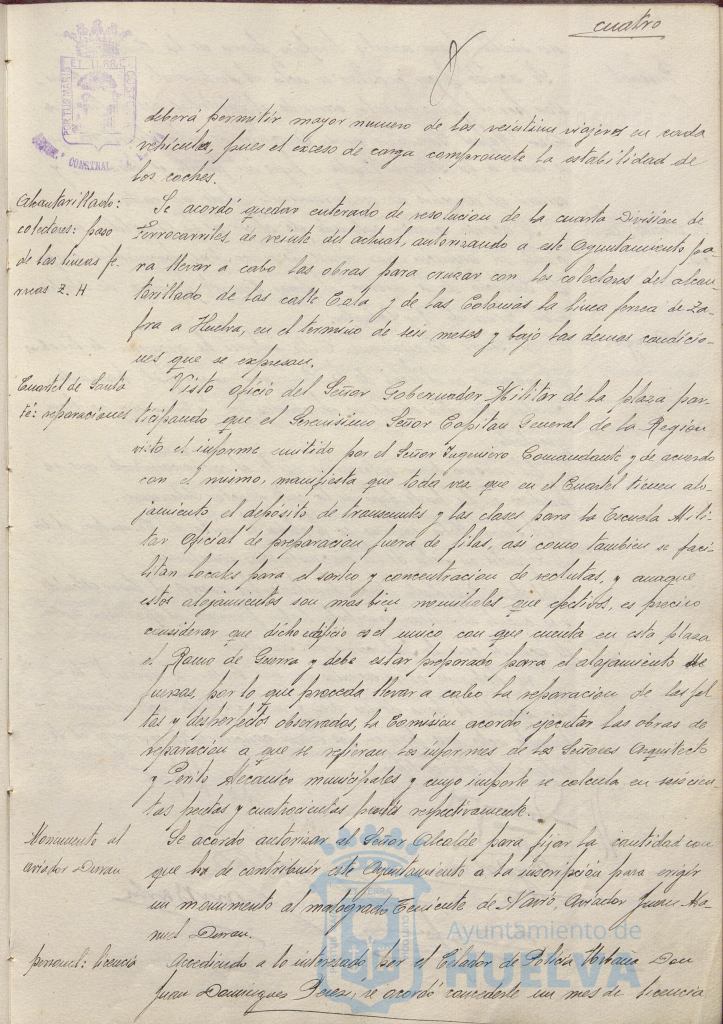 cuatro
deberá permitir mayor numero de los veintiun viajeros en cada
vehículo, pues el exceso de carga compromete la estabilidad de
los coches.
Alcantarillado:
colectores: paso
de las lineas fe-
rreas Z. H
Se acordó quedar enterado de resolucion de la cuarta Division de
Ferrocarriles, de veinte del actual, autorizando a este Ayuntamiento pa-
ra llevar a cabo las obras para cruzar con los colectores del alcan-
tarillado de las calle Cala y de las Colonias la linea ferrea de Za-
fra a Huelva, en el termino de seis meses y bajo las demas condicio-
nes que se expresan.
Cuartel de Santa
Fé: reparaciones
Visto oficio del Señor Gobernador Militar de la plaza par-
ticipando que el Serenisimo Señor Capitan General de la Region
visto el informe emitido por el Señor Ingeniero Comandante y de acuerdo
con el mismo, manifiesta que toda vez que en el Cuartel tienen alo-
jamiento el depósito de transeuntes y las clases para la Escuela Mili-
tar Oficial de preparacion fuera de filas, asi como tambien se faci-
litan locales para el sorteo y concentracion de reclutas, y aunque
estos alojamientos son mas bien nominales que efectivos, es preciso
considerar que dicho edificio es el unico con que cuenta en esta plaza
el Ramo de Guerra y debe estar preparado para el alojamiento de
fuerzas, por lo que proceda llevar a cabo la reparacion de las fal-
tas y desperfectos observados, la Comision acordó ejecutar las obras de
reparacion a que se refieran los informes de los Señores Arquitecto
y Perito Mecanico municipales y cuyo importe se calcula en seiscien-
tas pesetas y cuatrocientas pesetas respectivamente.
Monumento al
aviador Duran
Se acordo autorizar al Señor Alcalde para fijar la cantidad con
que ha de contribuir este Ayuntamiento a la suscripción para erigir
un monumento al malogrado Teniente de Navio, Aviador Juan Ma-
nuel Duran.
personal: licencia
Accediendo a lo interesado por el Celador de Policia Urbana Don
Juan Dominguez Perez, se acordó concederle un mes de licencia
PORTUS MARIS
ET TERRAE
CUSTODIA
Ayuntamiento de
HUELVA